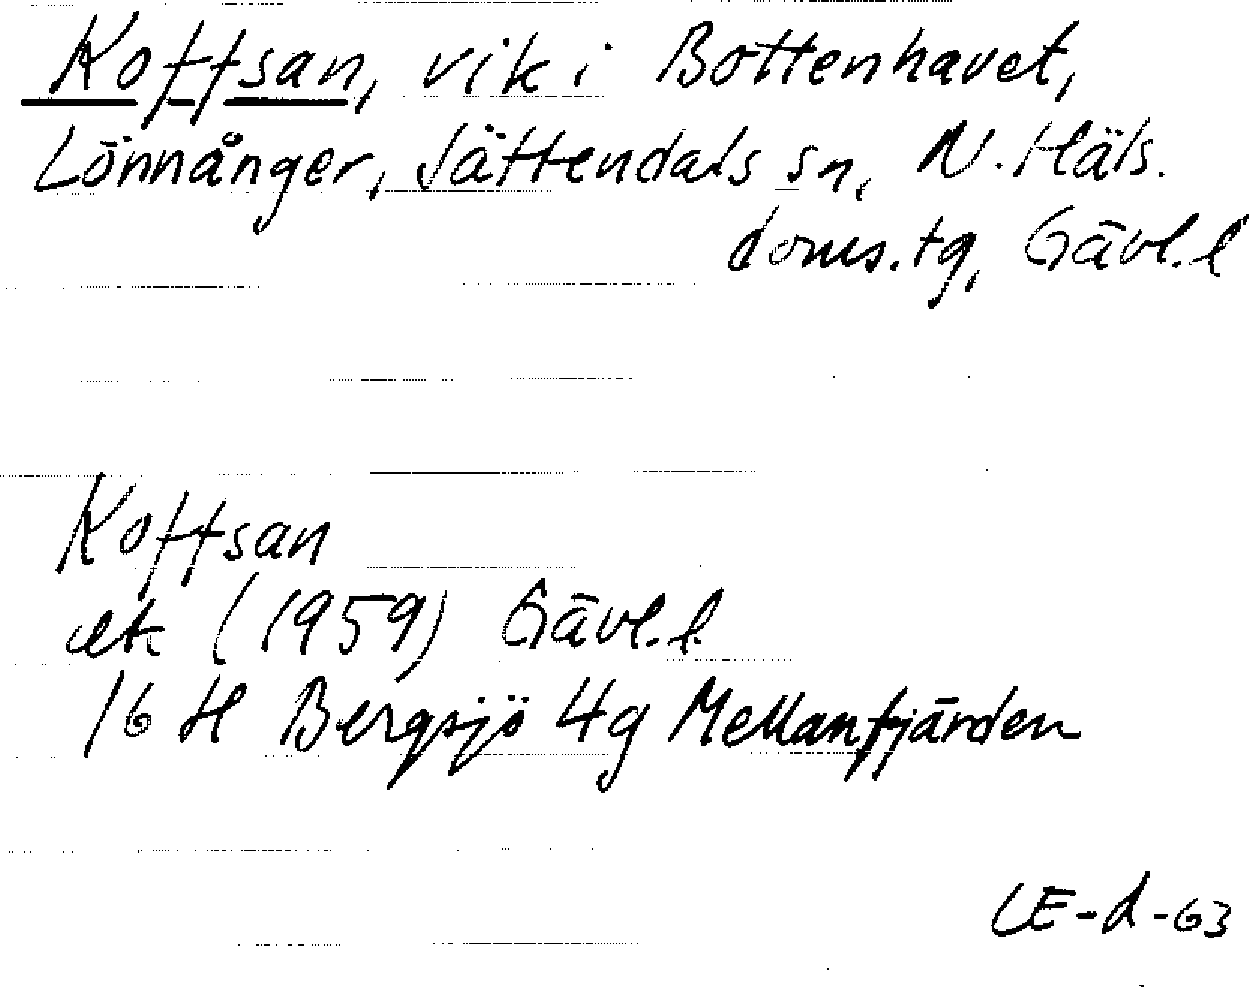 Koffsan, vik i Bottenhavet,
Lönnånger, Jättendals sn, N. Häls.
doms.tg, Gävl.l
Koffsan
ek (1959) Gävl.l.
16 H Bergsjö 4g Mellanfjärden
LE-d-63